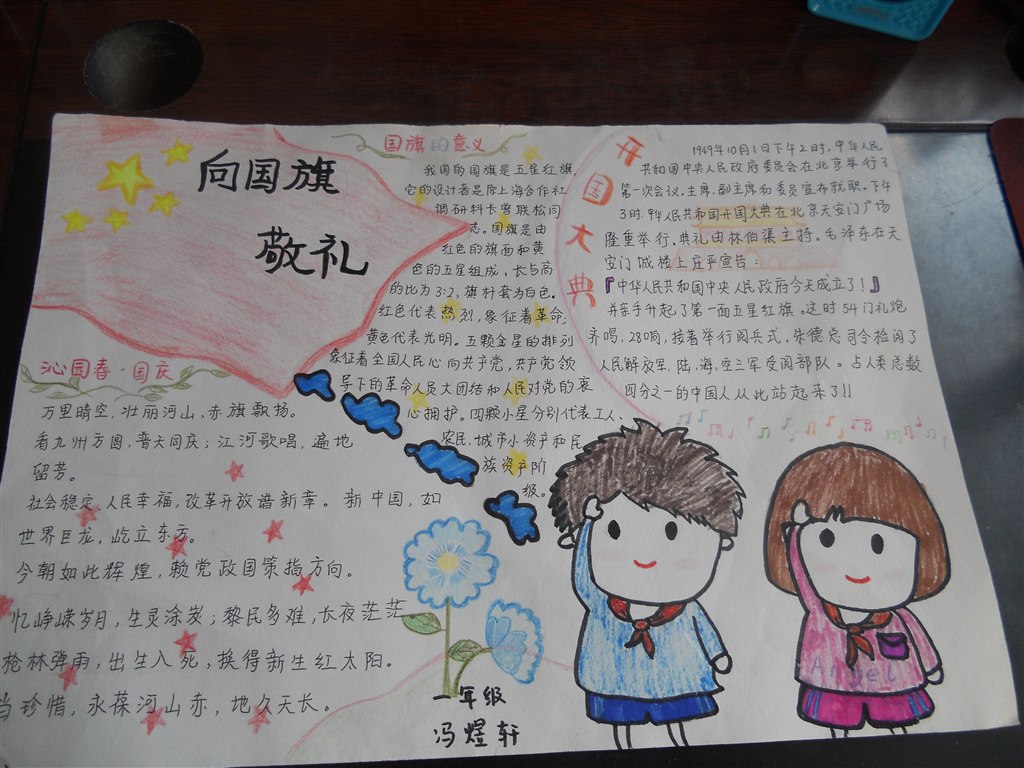 向国旗
敬礼
国旗的意义
我国的国旗是五星红旗,
它的设计者是原上海合作社
调研科长曾联松同
志。国旗是由
红色的旗面和黄
色的五星组成,长与高
的比为3:2,旗杆套为白色。
红色代表热烈,象征着革命;
黄色代表光明。五颗金星的排列
象征着全国人民心向共产党,共产党领
导下的革命人民大团结和人民对党的衷
心拥护。四颗小星分别代表工人、
农民、城市小资产和民
族资产阶
级。
开国大典
1949年10月1日下午2时,中华人民
共和国中央人民政府委员会在北京举行了
第一次会议,主席、副主席和委员宣布就职。下午
3时,中华人民共和国开国大典在北京天安门广场
隆重举行,典礼由林伯渠主持。毛泽东在天
安门城楼上庄严宣告:
『中华人民共和国中央人民政府今天成立了!』
并亲手升起了第一面五星红旗。这时54门礼炮
齐鸣,28响,接着举行阅兵式,朱德总司令检阅了
人民解放军,陆、海、空三军受阅部队。占人类总数
四分之一的中国人从此站起来了!!
沁园春·国庆
万里晴空,壮丽河山,赤旗飘扬。
看九州方圆,普天同庆;江河歌唱,遍地
留芳。
社会稳定,人民幸福,改革开放谱新章。新中国,如
世界巨龙,屹立东方。
今朝如此辉煌,赖党政国策指方向。
忆峥嵘岁月,生灵涂炭;黎民多难,长夜茫茫
枪林弹雨,出生入死,换得新生红太阳。
当珍惜,永葆河山赤,地久天长。
一年级
冯煜轩
Angel